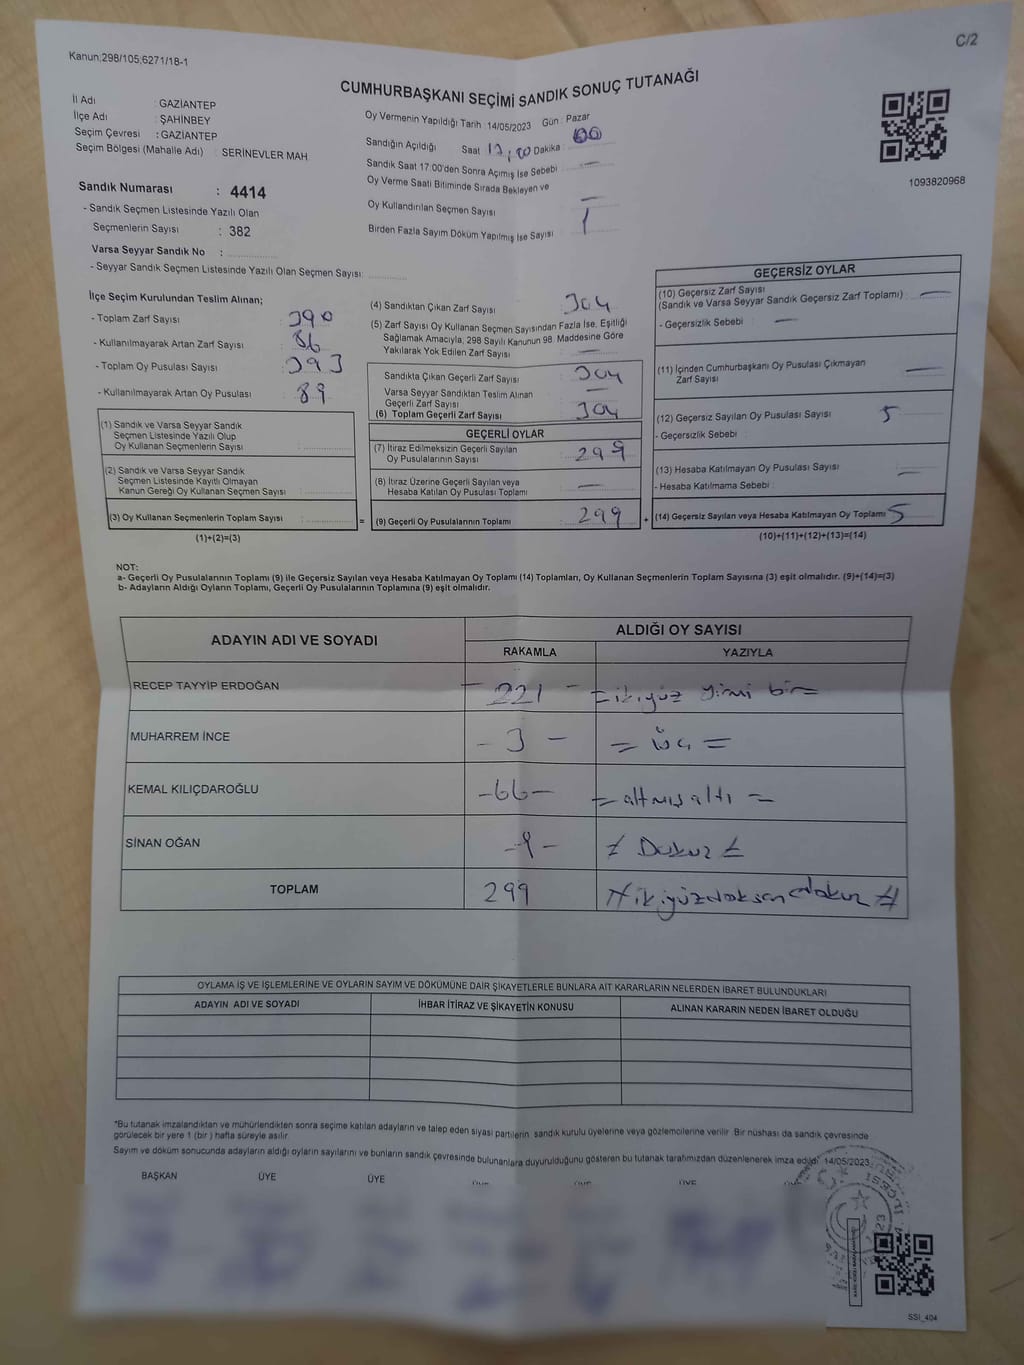 C/2
Kanun;298/105;6271/18-1
CUMHURBAŞKANI SEÇİMİ SANDIK SONUÇ TUTANAĞI
İl Adı : GAZİANTEP
İlçe Adı : ŞAHİNBEY
Seçim Çevresi : GAZİANTEP
Seçim Bölgesi (Mahalle Adı) : SERİNEVLER MAH
Sandık Numarası : 4414
- Sandık Seçmen Listesinde Yazılı Olan
Seçmenlerin Sayısı : 382
Varsa Seyyar Sandık No :
- Seyyar Sandık Seçmen Listesinde Yazılı Olan Seçmen Sayısı:
Oy Vermenin Yapıldığı Tarih : 14/05/2023 Gün : Pazar
Sandığın Açıldığı Saat 17,00 Dakika : 00
Sandık Saat 17:00'den Sonra Açımış İse Sebebi : —
Oy Verme Saati Bitiminde Sırada Bekleyen ve
Oy Kullandırılan Seçmen Sayısı —
Birden Fazla Sayım Döküm Yapılmış İse Sayısı : 1
1093820968
İlçe Seçim Kurulundan Teslim Alınan;
- Toplam Zarf Sayısı : 390
- Kullanılmayarak Artan Zarf Sayısı : 86
- Toplam Oy Pusulası Sayısı : 393
- Kullanılmayarak Artan Oy Pusulası : 89
(1) Sandık ve Varsa Seyyar Sandık
Seçmen Listesinde Yazılı Olup
Oy Kullanan Seçmenlerin Sayısı :
(2) Sandık ve Varsa Seyyar Sandık
Seçmen Listesinde Kayıtlı Olmayan
Kanun Gereği Oy Kullanan Seçmen Sayısı :
(3) Oy Kullanan Seçmenlerin Toplam Sayısı :
(1)+(2)=(3)
(4) Sandıktan Çıkan Zarf Sayısı : 304
(5) Zarf Sayısı Oy Kullanan Seçmen Sayısından Fazla İse, Eşitliği
Sağlamak Amacıyla, 298 Sayılı Kanunun 98. Maddesine Göre
Yakılarak Yok Edilen Zarf Sayısı : —
Sandıkta Çıkan Geçerli Zarf Sayısı : 304
Varsa Seyyar Sandıktan Teslim Alınan
Geçerli Zarf Sayısı : —
(6) Toplam Geçerli Zarf Sayısı : 304
GEÇERLİ OYLAR
(7) İtiraz Edilmeksizin Geçerli Sayılan
Oy Pusulalarının Sayısı : 299
(8) İtiraz Üzerine Geçerli Sayılan veya
Hesaba Katılan Oy Pusulası Toplamı : —
= (9) Geçerli Oy Pusulalarının Toplamı : 299 +
GEÇERSİZ OYLAR
(10) Geçersiz Zarf Sayısı
(Sandık ve Varsa Seyyar Sandık Geçersiz Zarf Toplamı) : —
- Geçersizlik Sebebi : —
(11) İçinden Cumhurbaşkanı Oy Pusulası Çıkmayan
Zarf Sayısı —
(12) Geçersiz Sayılan Oy Pusulası Sayısı : 5
- Geçersizlik Sebebi :
(13) Hesaba Katılmayan Oy Pusulası Sayısı : —
- Hesaba Katılmama Sebebi :
(14) Geçersiz Sayılan veya Hesaba Katılmayan Oy Toplamı : 5
(10)+(11)+(12)+(13)=(14)
NOT:
a- Geçerli Oy Pusulalarının Toplamı (9) ile Geçersiz Sayılan veya Hesaba Katılmayan Oy Toplamı (14) Toplamları, Oy Kullanan Seçmenlerin Toplam Sayısına (3) eşit olmalıdır. (9)+(14)=(3)
b- Adayların Aldığı Oyların Toplamı, Geçerli Oy Pusulalarının Toplamına (9) eşit olmalıdır.
ADAYIN ADI VE SOYADI ALDIĞI OY SAYISI
RAKAMLA YAZIYLA
RECEP TAYYİP ERDOĞAN - 221 - = ikiyüz yirmi bir =
MUHARREM İNCE - 3 - = üç =
KEMAL KILIÇDAROĞLU - 66 - = altmışaltı =
SİNAN OĞAN - 9 - ≠ Dokuz ≠
TOPLAM 299 # ikiyüzdoksandokuz #
OYLAMA İŞ VE İŞLEMLERİNE VE OYLARIN SAYIM VE DÖKÜMÜNE DAİR ŞİKAYETLERLE BUNLARA AİT KARARLARIN NELERDEN İBARET BULUNDUKLARI
ADAYIN ADI VE SOYADI İHBAR İTİRAZ VE ŞİKAYETİN KONUSU ALINAN KARARIN NEDEN İBARET OLDUĞU
*Bu tutanak imzalandıktan ve mühürlendikten sonra seçime katılan adayların ve talep eden siyasi partilerin sandık kurulu üyelerine veya gözlemcilerine verilir. Bir nüshası da sandık çevresinde
görülecek bir yere 1 (bir) hafta süreyle asılır.
Sayım ve döküm sonucunda adayların aldığı oyların sayılarını ve bunların sandık çevresinde bulunanlara duyurulduğunu gösteren bu tutanak tarafımızdan düzenlenerek imza edildi. 14/05/2023
BAŞKAN ÜYE ÜYE ÜYE ÜYE ÜYE
SSİ_404